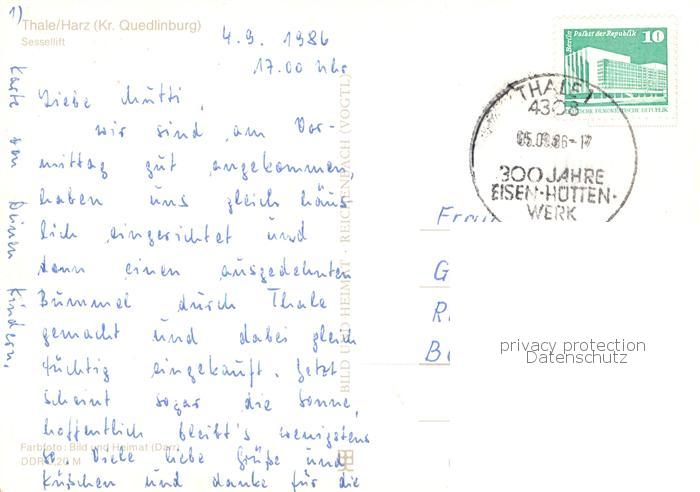 1)
Thale/Harz (Kr. Quedlinburg)
Sessellift
4.9. 1986
17.00 Uhr
Liebe Mutti,
wir sind am Vor-
mittag gut angekommen,
haben uns gleich häus
lich eingerichtet und
dann einen ausgedehnten
Bummel durch Thale
gemacht und dabei gleich
tüchtig eingekauft. Jetzt
scheint sogar die Sonne,
hoffentlich bleibt's wenigstens
so Viele liebe Grüße und
Küßchen und danke für die
Karte von Deinen Kindern.
Farbfoto: Bild und Heimat (Darr)
DDR 0,20 M
BILD UND HEIMAT · REICHENBACH (VOGTL)
Berlin Palast der Republik 10
DEUTSCHE DEMOKRATISCHE REPUBLIK
THALE 1
4308
05.09.86-17
300 JAHRE
EISEN-HÜTTEN-
WERK
Frau
G
R
B
privacy protection
Datenschutz